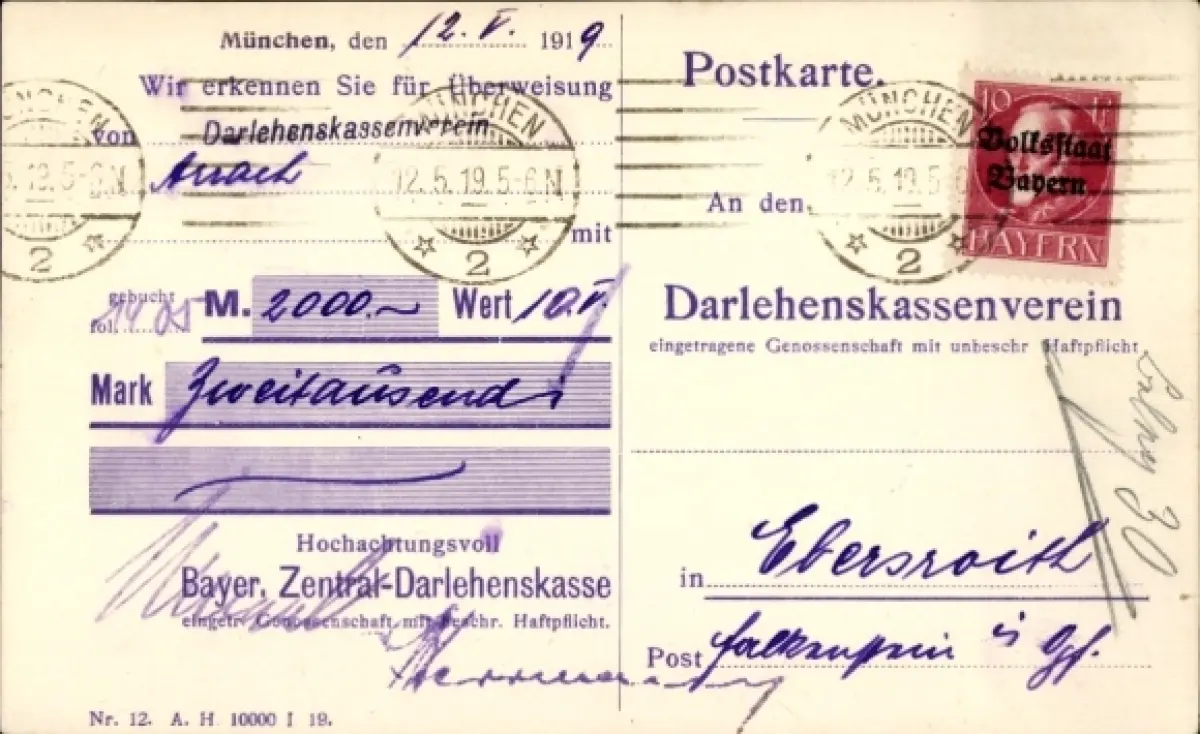 München, den 12. V. 1919
Wir erkennen Sie für Überweisung
von Darlehenskassenverein
Arrach
mit
gebucht
fol.
M. 2000.~ Wert 10.V.
Mark Zweitausend
Hochachtungsvoll
Bayer. Zentral-Darlehenskasse
eingetr. Genossenschaft mit beschr. Haftpflicht.
Nr. 12. A. H 10000 I 19.
MÜNCHEN
12.5.19.5-6N
2
MÜNCHEN
12.5.19.5-6N
2
Postkarte.
MÜNCHEN
12.5.19.5
2
10
Volksstaat
Bayern
BAYERN
An den
Darlehenskassenverein
eingetragene Genossenschaft mit unbeschr Haftpflicht
in Ebersroith
Post Falkenstein
30